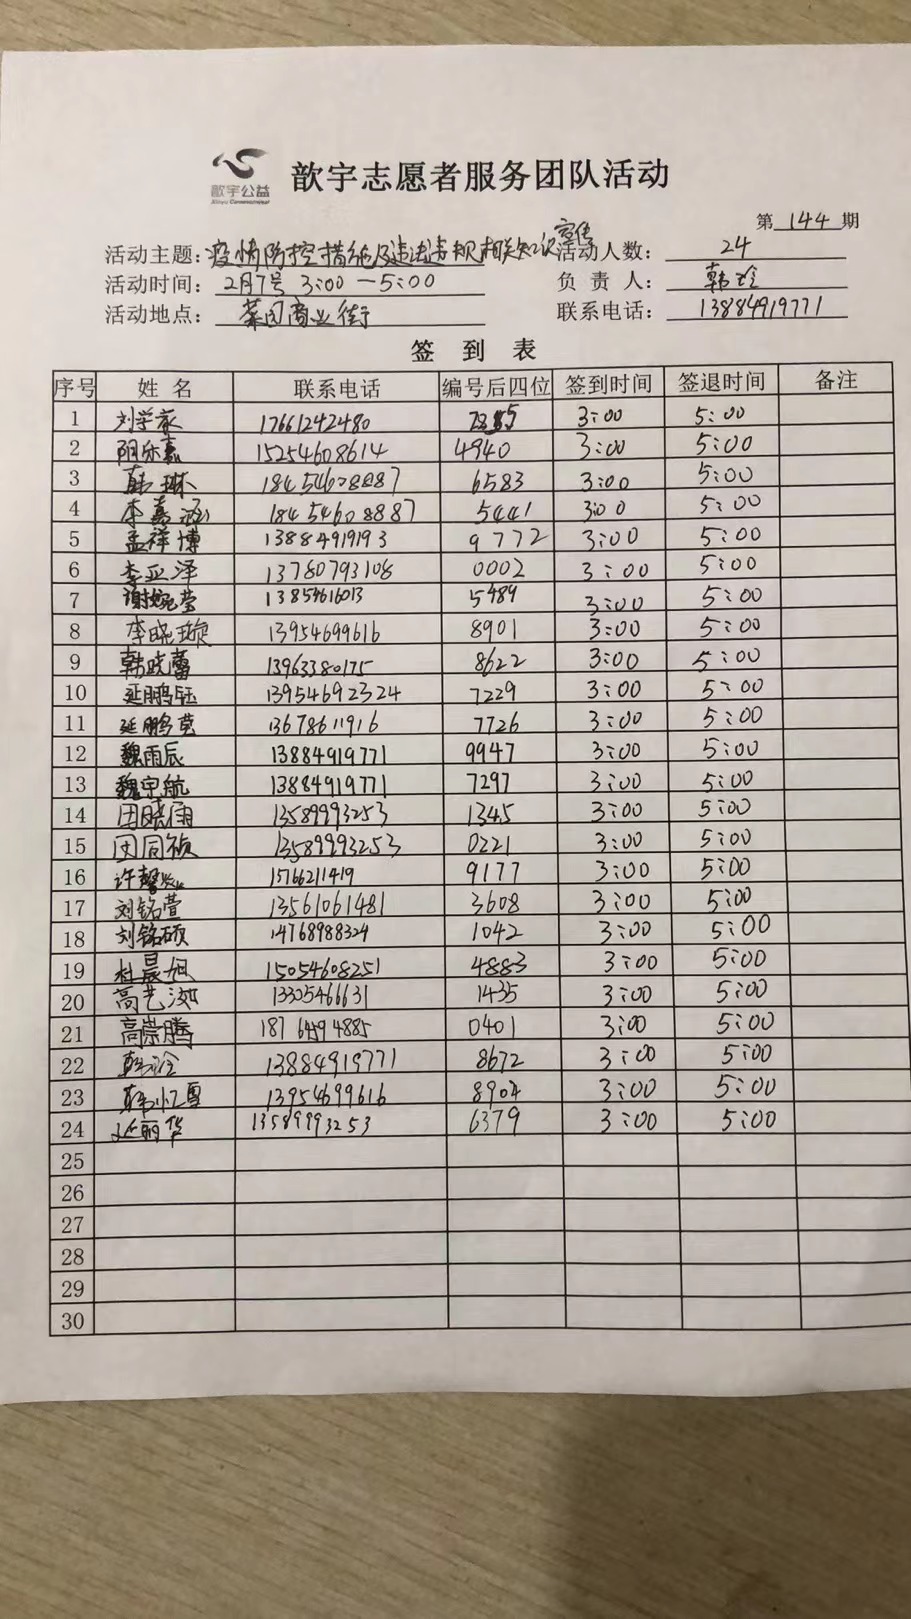 歆宇公益
歆宇志愿者服务团队活动
第 144 期
活动主题：疫情防控措施及违法违规相关知识宣传 活动人数： 24
活动时间： 2月7号 3:00—5:00 负 责 人： 韩玲
活动地点： 菜园商业街 联系电话： 13884919771
签 到 表
序号 姓 名 联系电话 编号后四位 签到时间 签退时间 备注
1 刘学家 17661242480 3:00 5:00
2 15254608614 4940 3:00 5:00
3 韩琳 18454608887 6583 3:00 5:00
4 李嘉涵 18454608887 5441 3:00 5:00
5 孟祥博 13884919193 9772 3:00 5:00
6 李亚泽 13780793108 0002 3:00 5:00
7 谢婉莹 13854616013 5989 3:00 5:00
8 李晓璇 13954699616 8901 3:00 5:00
9 韩晓蕾 13963380175 8622 3:00 5:00
10 延鹏钰 13954692324 7229 3:00 5:00
11 延鹏莹 13678611916 7726 3:00 5:00
12 魏雨辰 13884919771 9947 3:00 5:00
13 魏宇航 13884919771 7297 3:00 5:00
14 田晓雨 13589993253 1345 3:00 5:00
15 田同祯 13589993253 0221 3:00 5:00
16 许馨 15766211419 9177 3:00 5:00
17 刘铭萱 13561061481 3608 3:00 5:00
18 刘铭硕 14768988324 1042 3:00 5:00
19 杜晨旭 15054608251 4883 3:00 5:00
20 高艺 13305466631 1435 3:00 5:00
21 高崇腾 18764594885 0401 3:00 5:00
22 韩玲 13884919771 8672 3:00 5:00
23 韩忆 13954699616 8904 3:00 5:00
24 延丽华 13589993253 6379 3:00 5:00
25
26
27
28
29
30